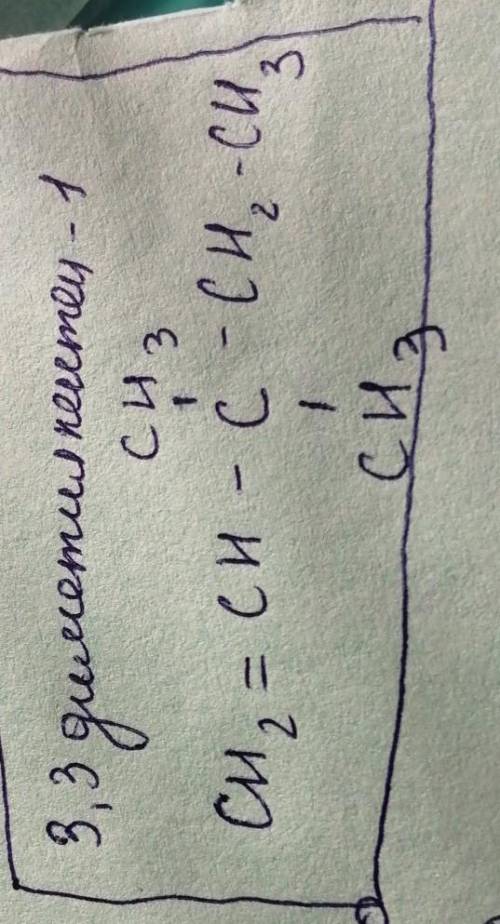 3,3 диметилпентен-1
CH3
CH2=CH-C-CH2-CH3
CH3